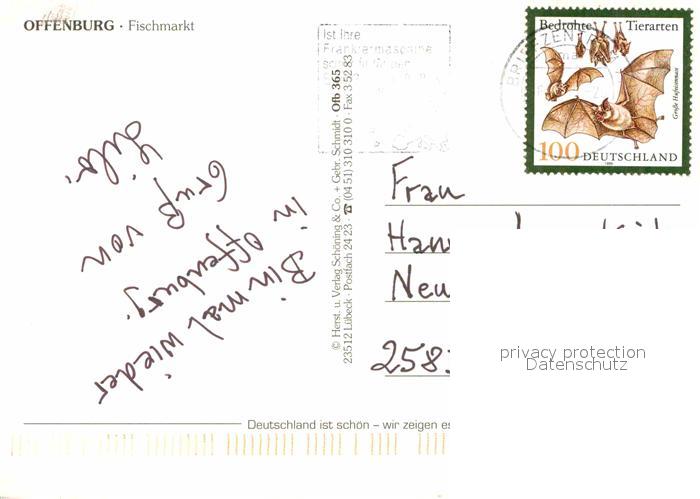 OFFENBURG · Fischmarkt
Ist Ihre
Frankiermaschine
Bedrohte Tierarten
Große Hufeisennase
100 DEUTSCHLAND
BRIEFZENTRUM
© Herst. u. Verlag Schöning & Co. + Gebr. Schmidt · Ofb 365
23512 Lübeck · Postfach 24 23 · ☎ (04 51) 310 310 0 · Fax 3 52 83
Bin mal wieder
in Offenburg.
Gruß von
Frau
Han
Neu
258
privacy protection
Datenschutz
Deutschland ist schön – wir zeigen es